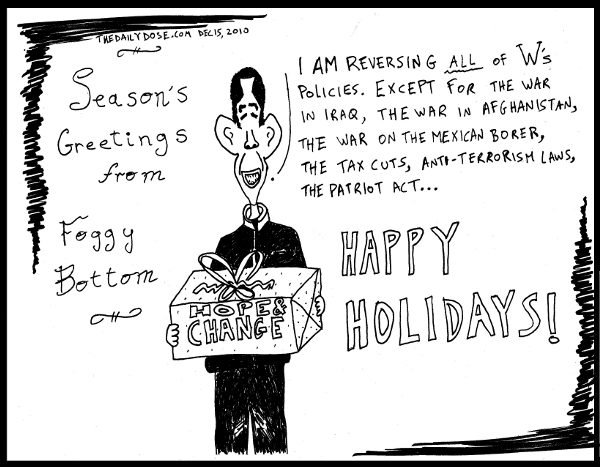 THEDAILYDOSE.COM DEC 15, 2010
Season's
Greetings
from
Foggy
Bottom
I AM REVERSING ALL OF W's
POLICIES. EXCEPT FOR THE WAR
IN IRAQ, THE WAR IN AFGHANISTAN,
THE WAR ON THE MEXICAN BORER,
THE TAX CUTS, ANTI-TERRORISM LAWS,
THE PATRIOT ACT...
HAPPY
HOLIDAYS!
HOPE &
CHANGE